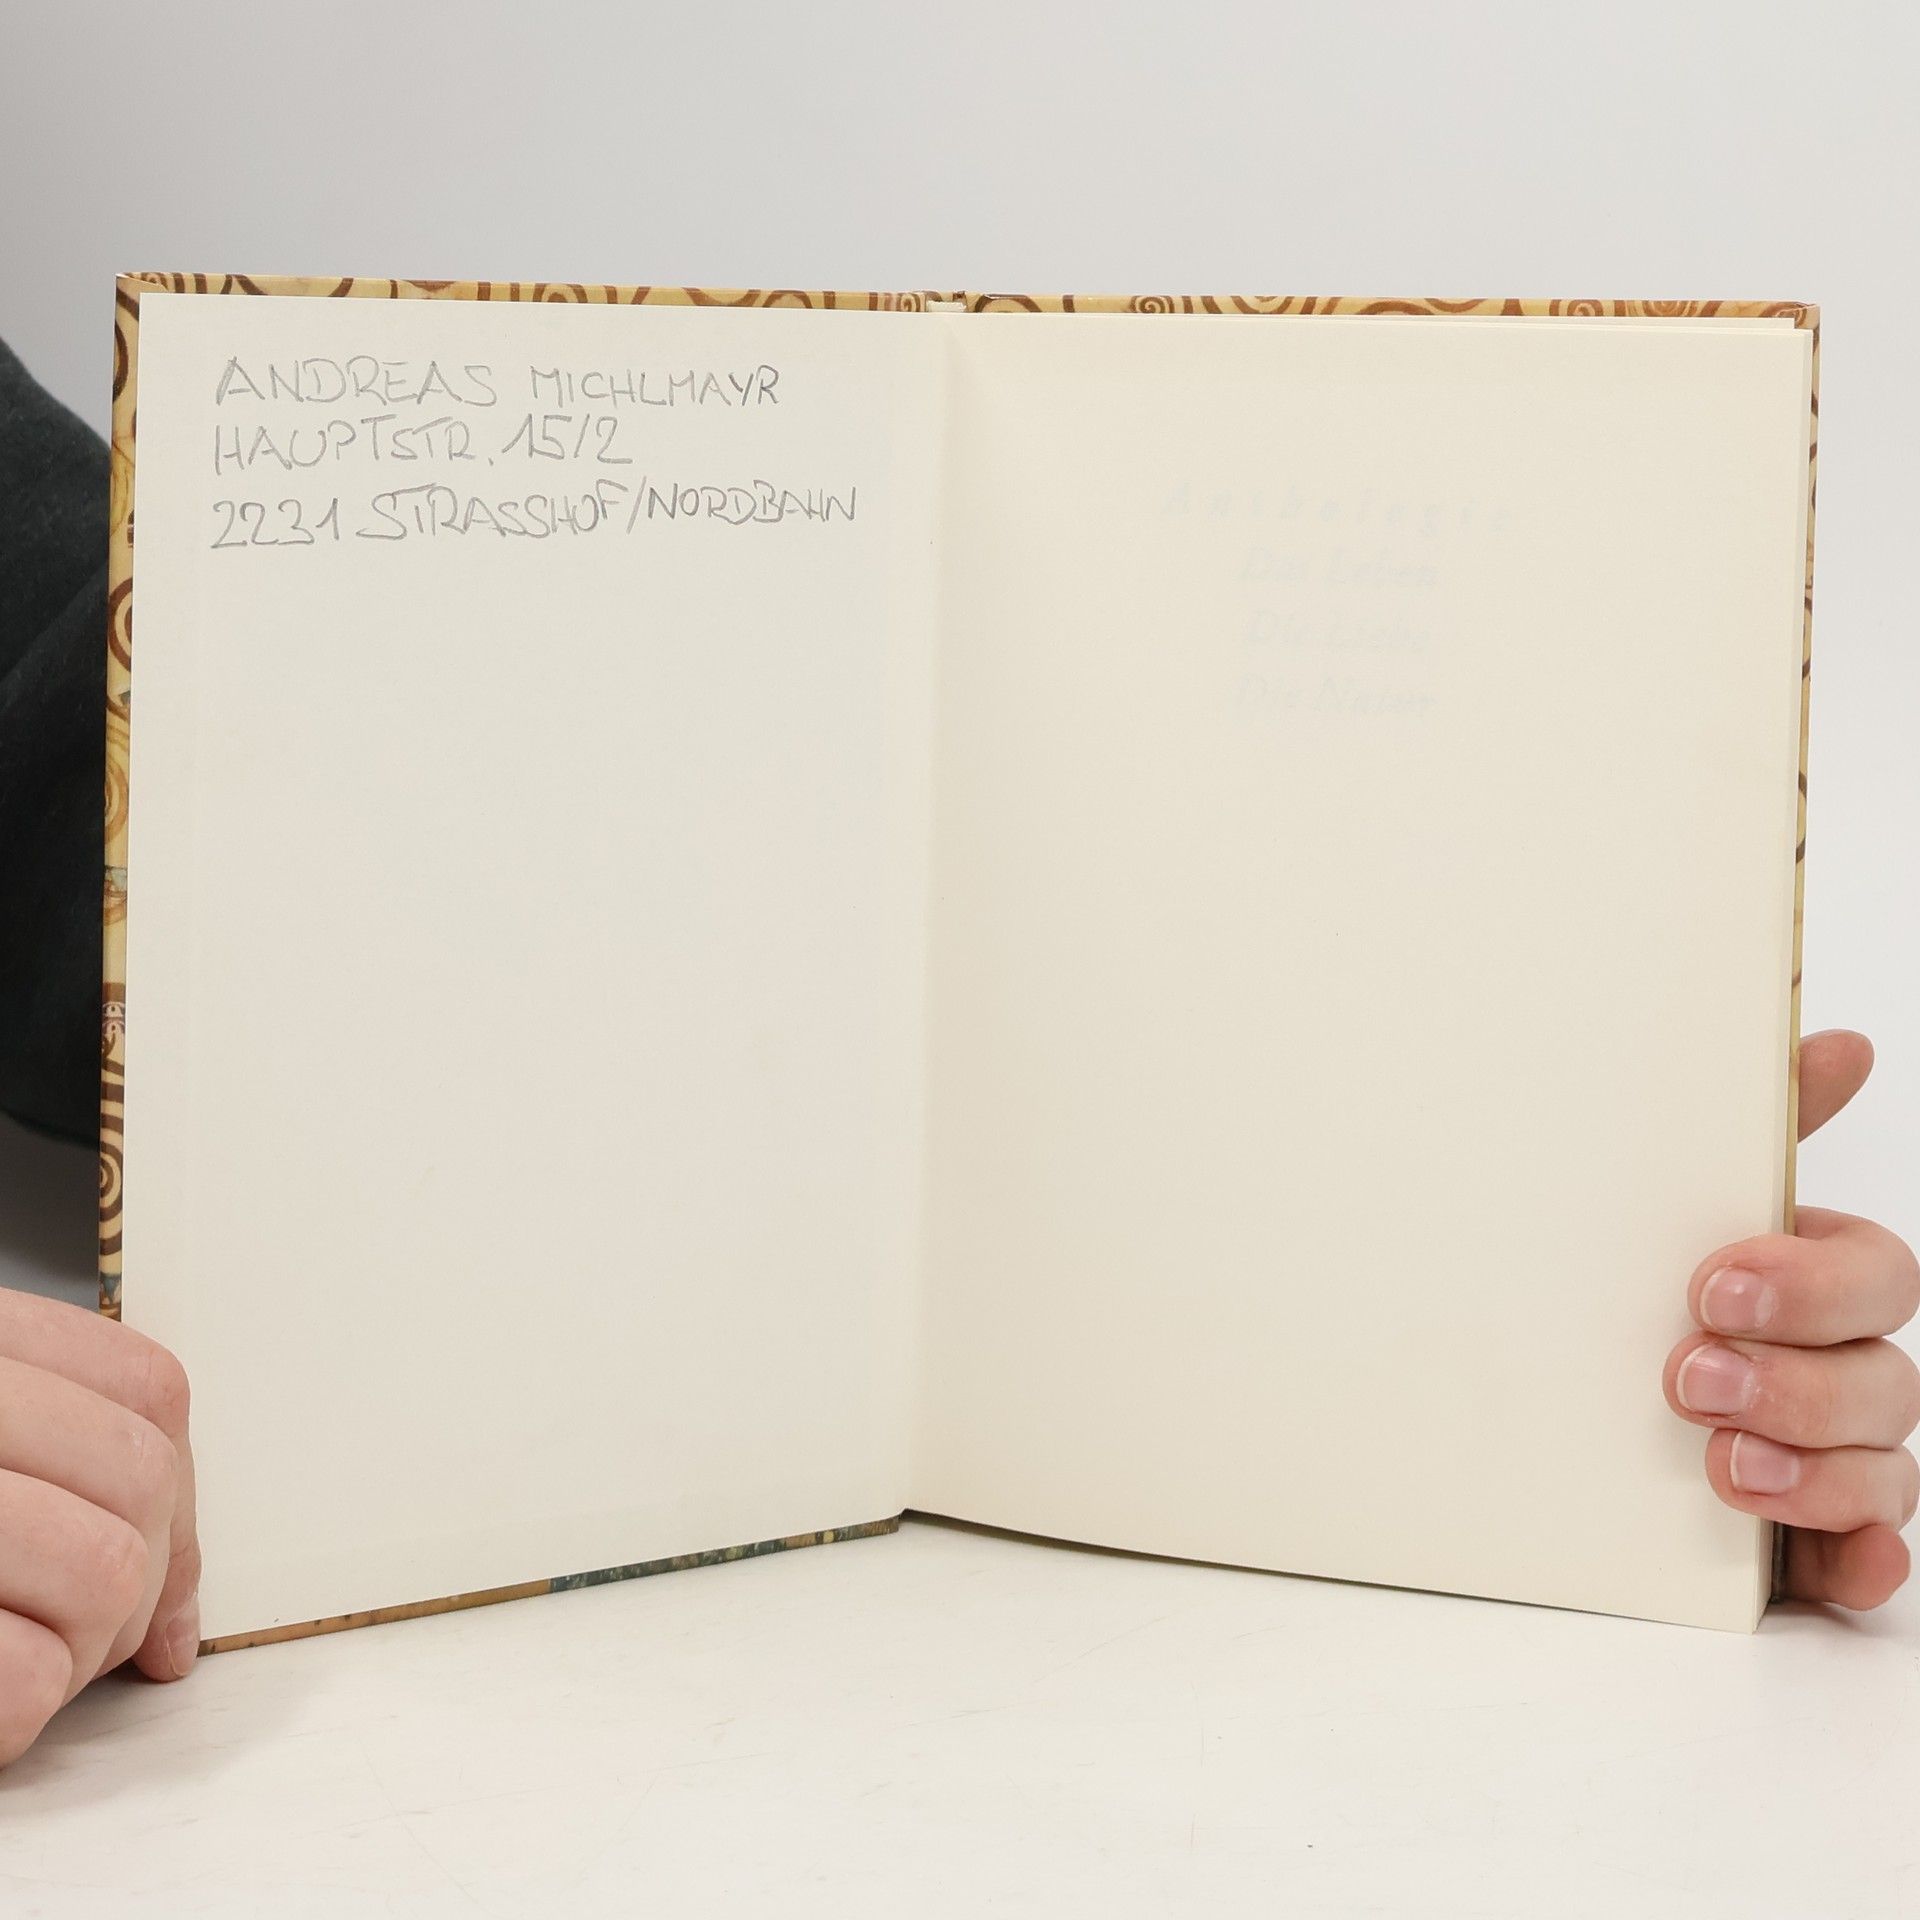 ANDREAS MICHLMAYR
HAUPTSTR. 15/2
2231 STRASSHOF/NORDBAHN
Anthologie
Das Leben
Die Liebe
Die Natur